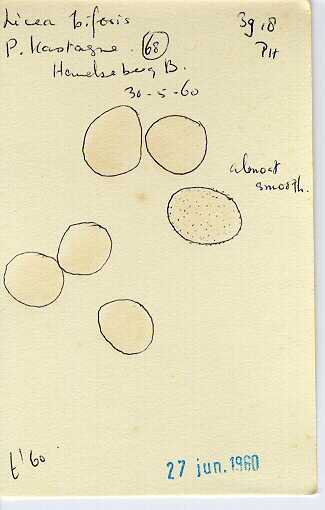 Licea biforis
P. Kastagne. 68
Hemelseberg B.
30-5-60
3918
PH
almost
smooth.
t' 60
27 jun. 1960